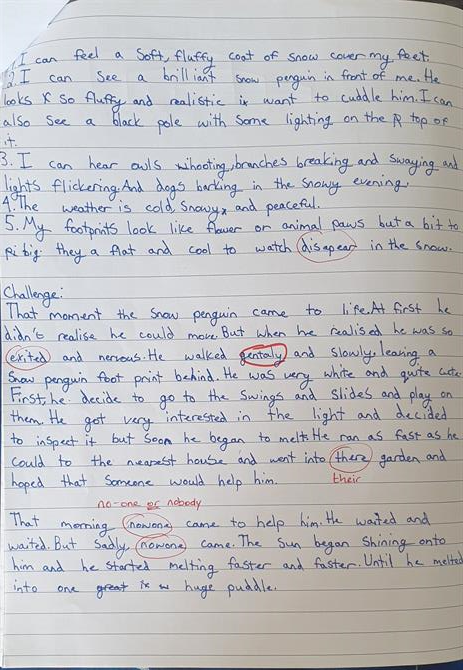 1. I can feel a soft, fluffy coat of snow cover my feet.
2. I can see a brilliant snow penguin in front of me. He
looks so fluffy and realistic i want to cuddle him. I can
also see a black pole with some lighting on the top of
it.
3. I can hear owls whooting, branches breaking and swaying and
lights flickering. And dogs barking in the snowy evening.
4. The weather is cold, snowy, and peaceful.
5. My footprints look like flower or animal paws but a bit to
big they a flat and cool to watch disapear in the snow.
Challenge:
That moment the snow penguin came to life. At first he
didn't realise he could move. But when he realised he was so
exited and nervous. He walked gentaly and slowly leaving a
snow penguin foot print behind. He was very white and quite cute.
First, he decide to go to the swings and slides and play on
them. He got very interested in the light and decided
to inspect it but soon he began to melt. He ran as fast as he
could to the nearest house and went into there garden and
hoped that someone would help him. their
no-one or nobody
That morning nowone came to help him. He waited and
waited. But sadly, nowone came. The sun began shining onto
him and he started melting faster and faster. Until he melted
into one great huge puddle.